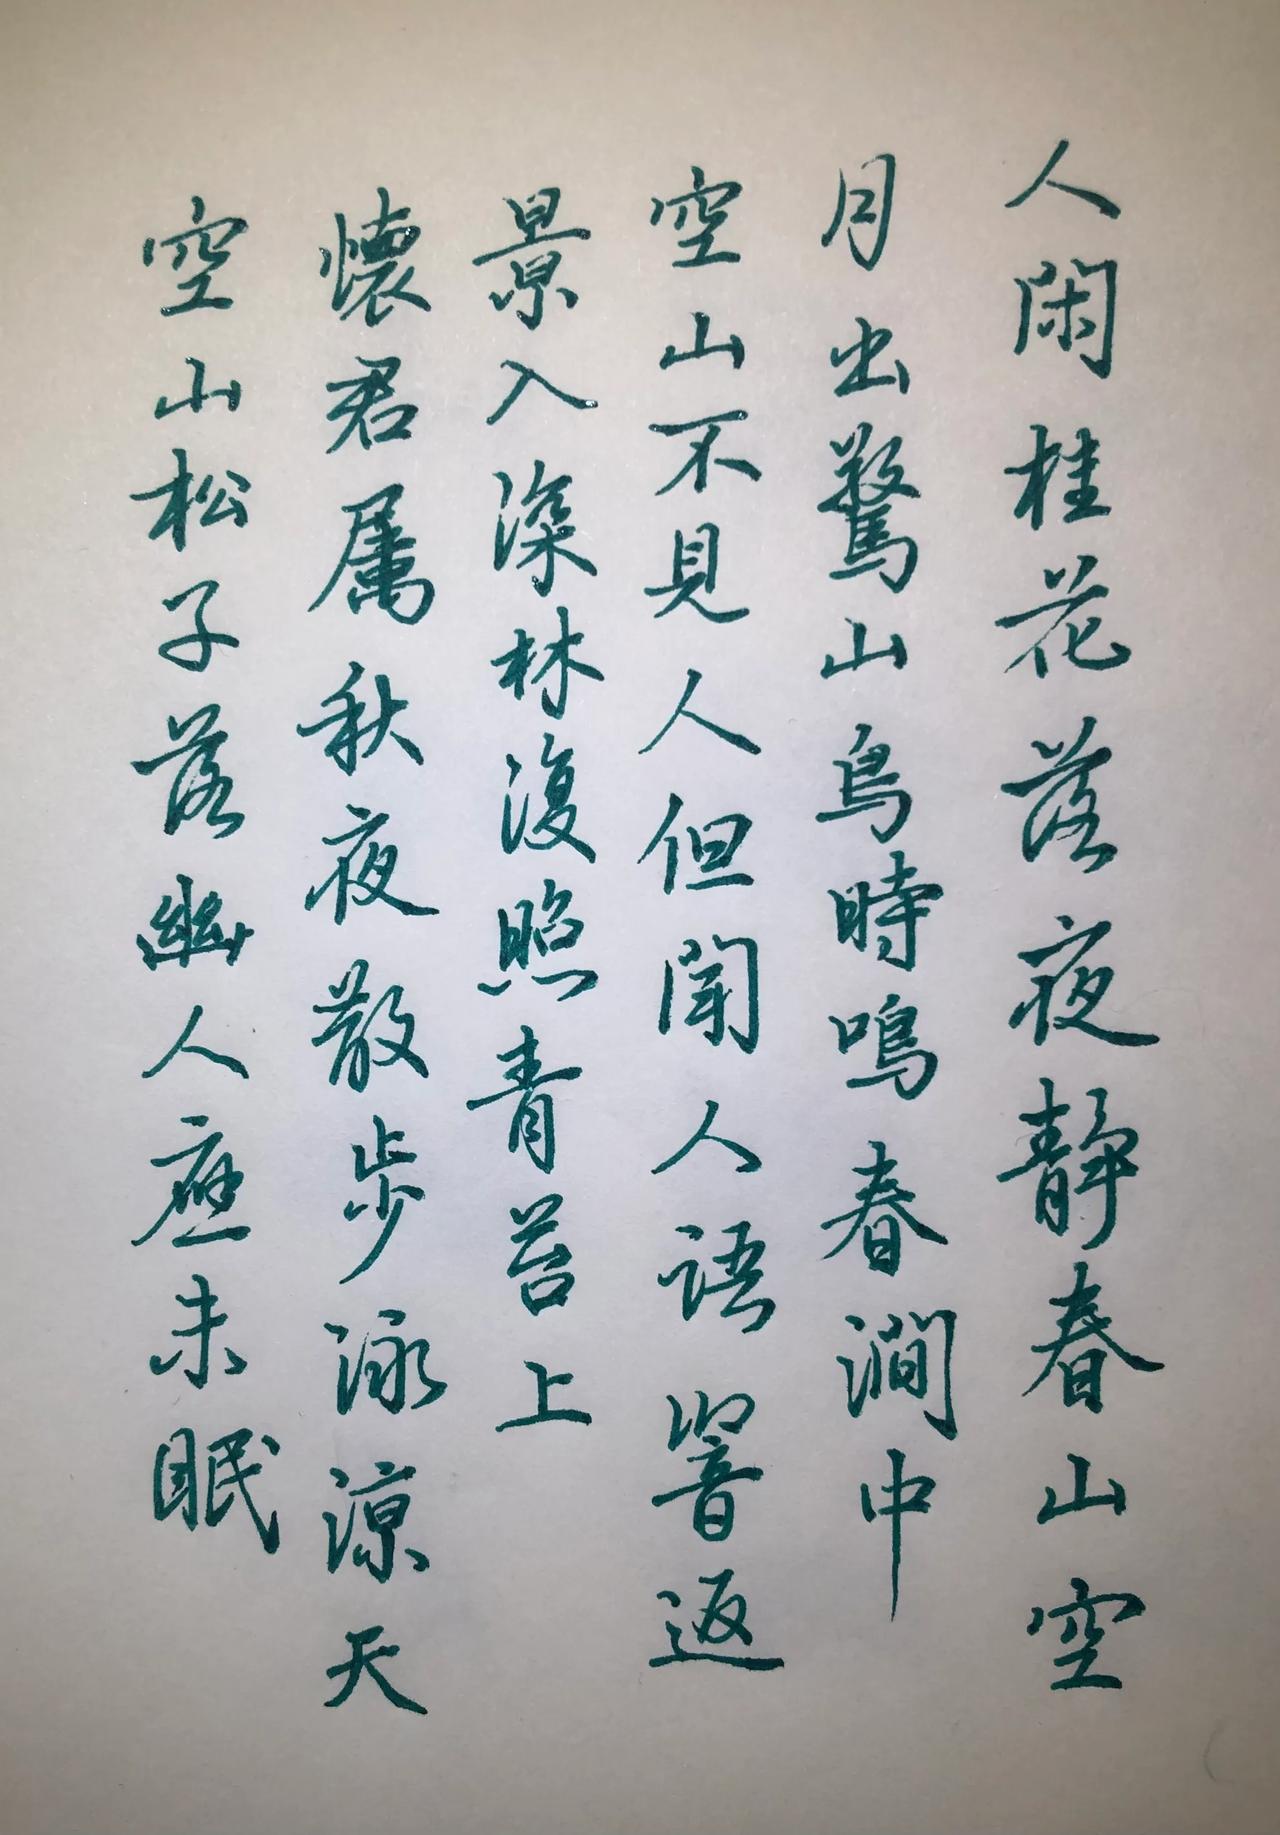 人閑桂花落夜静春山空
月出驚山鳥時鳴春澗中
空山不見人但聞人語響返
景入深林復照青苔上
懷君属秋夜散步泳涼天
空山松子落幽人應未眠